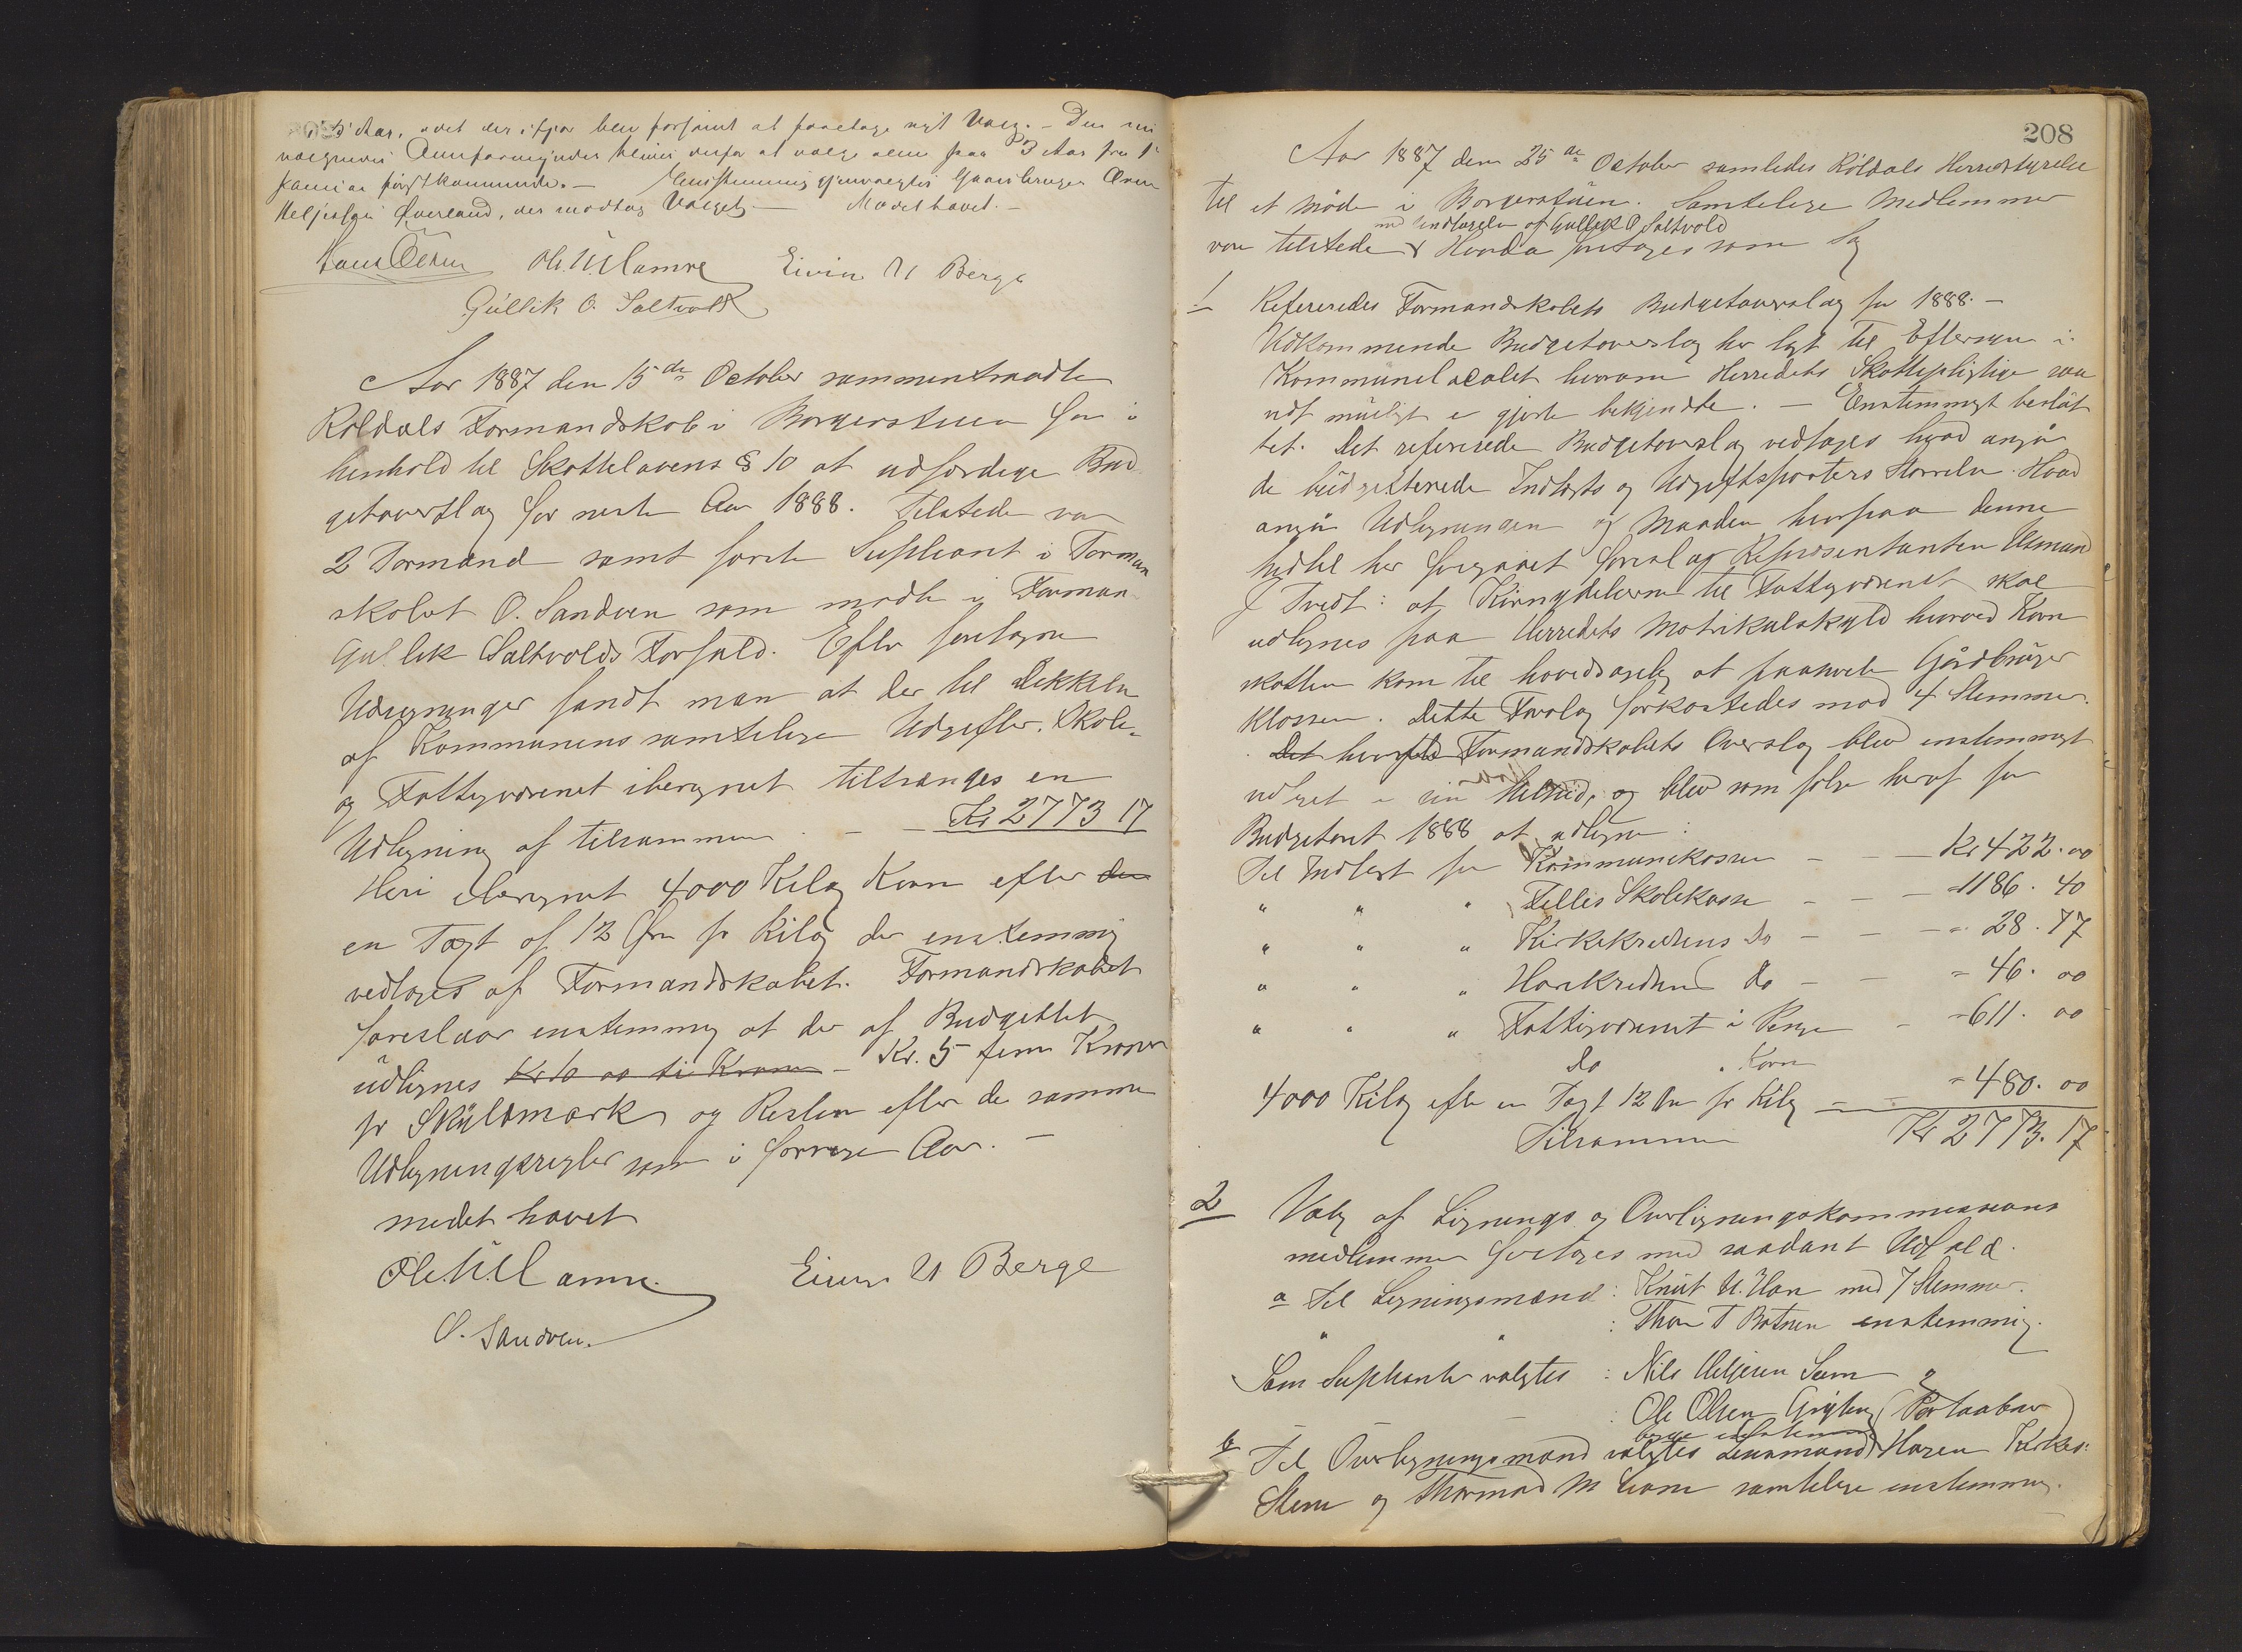 5 Aar, idet der ifjor blev forsømt at foretage nyt Valg. - Den nu
valgendes bliver derfor at valge alene paa 3 Aar fra 1ste
januar førstkommende. - Enstemmig gjenvalgtes Gaardbruger
Heljesen Øverland, der modtog Valget. - Mødet hævet. -
Ole. N. Hamre Eivin N Berge
Gullik O. Saltvold
Aar 1887 den 15de October sammentraadte
Røldals Formandskab i Borgerstuen for i
henhold til Skattelovens § 10 at udfærdige Bud
getoverslag for neste Aar 1888. Tilstede var
2 Formænd samt første Supleant i Forman
skabet O. Sandven som mødte i Forman
Gullik Saltvolds Forfald. Efter foretagne
Udregninger fandt man at der til Dekkelse
af Kommunens samtelige Udgifter, Skole-
og Fattigvæsenet iberegnet tiltrænges en
Udligning af tilsammen - - Kr 2773 17
Heri iberegnet 4000 Kilog Korn efter den
en Taxt af 12 Øre pr Kilog der enstemmig
vedtoges af Formandskabet. Formandskabet
foreslaar enstemmig at der af Budgettet
udlignes Kr 10 00 ti Kroner - Kr. 5 fem Kroner
pr Skyldmark og Resten efter de samme
Udligningsregler som i forrige Aar. -
mødet hævet
Ole N. Hamre. Eivin N Berge
O. Sandven.
208
Aar 1887 den 25de October samledes Röldals Herredstyrelse
til et møde i Borgerstuen. Samtelige Medlemmer
med Undtagelse af Gullik O Saltvold
var tilstede & Hvorda foretoges som Sag
1 Refereredes Formandskabets Budgetoverslag for 1888. -
Vedkommende Budgetoverslag har lagt til Eftersyn i
Kommunelocalet hvorom Herredets Skattepligtige saa
vidt muligt er gjorte bekjendte. - Enstemmigt besluttet
tet. Det refererede Budgetoverslag vedtoges hvad angår
de budgetterede Indtægts og Udgiftsposters Størrelse. Hvad
angår Udligningen og Maaden hvorpaa denne
hidtil har foregaaet foreslog Repræsentanten Asmund
J Tvedt: at Kornydelserne til Fattigvæsenet skal
udlignes paa Herredets Matrikulskyld hvorved Korn
skatten kom til hovedsagelig at paahvile Gårdbruger
klassen. Dette Forslag forkastedes mod 4 Stemmer.
Det Formandskabets Overslag blev enstemmigt
vedtaget i sin Helhed, og blev som følge heraf for
Budgetaaret 1888 at udligne:
Til Indtægt for Kommunekassen - - - Kr 422.00
" " " Felles Skolekasse - - - - 1186. 40
" " " Kirkekredsens Do - - - = 28. 77
" " " Horekredsens Do - - = 46. 00
" " " Fattigvæsenet i Penge - = 611. 00
Do " Korn
4000 Kilog efter en Taxt 12 Øre pr Kilog - = 480. 00
Tilsammen Kr 2773. 17
2 Valg af Lignings og Overligningskommissions
medlemmer foretoges med saadant Udfald.
a Til Ligningsmænd: Knut N. Hare med 7 Stemmer.
" " : Thor T Botnen enstemmig.
Som Supleanter valgtes: Nils Heljesen Sem
: Ole Olsen Grytting
b Til Overligningsmænd valgtes Lensmand Haren Kirkes.
Stene og Thormod M Hare samtelige enstemmig.